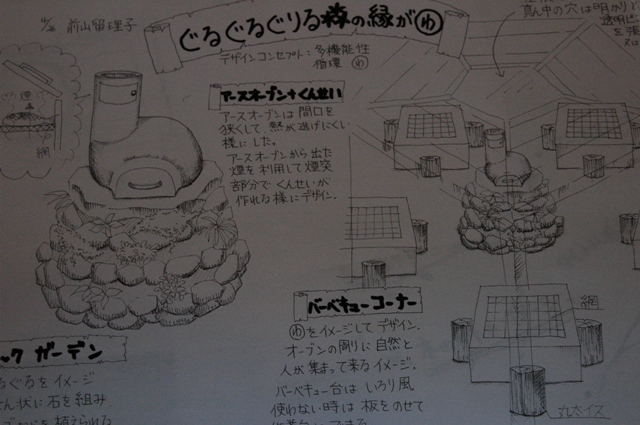 前山留理子
ぐるぐるぐりる森の縁がわ
デザインコンセプト：多機能性
循環 わ
真ん中の穴は明かり
透明に
を張
網
アースオーブン+くんせい
アースオーブンは間口を
狭くして、熱が逃げにくい
様にした。
アースオーブンから出た
煙を利用して煙突
部分でくんせいが
作れる様にデザイン。
バーベキューコーナー
わをイメージしてデザイン.
オーブンの周りに自然と
人が集まって来るイメージ.
バーベキュー台はいろり風
使わない時は板をのせて
網
丸太イス
ック ガーデン
るぐるをイメージ
ん状に石を組み